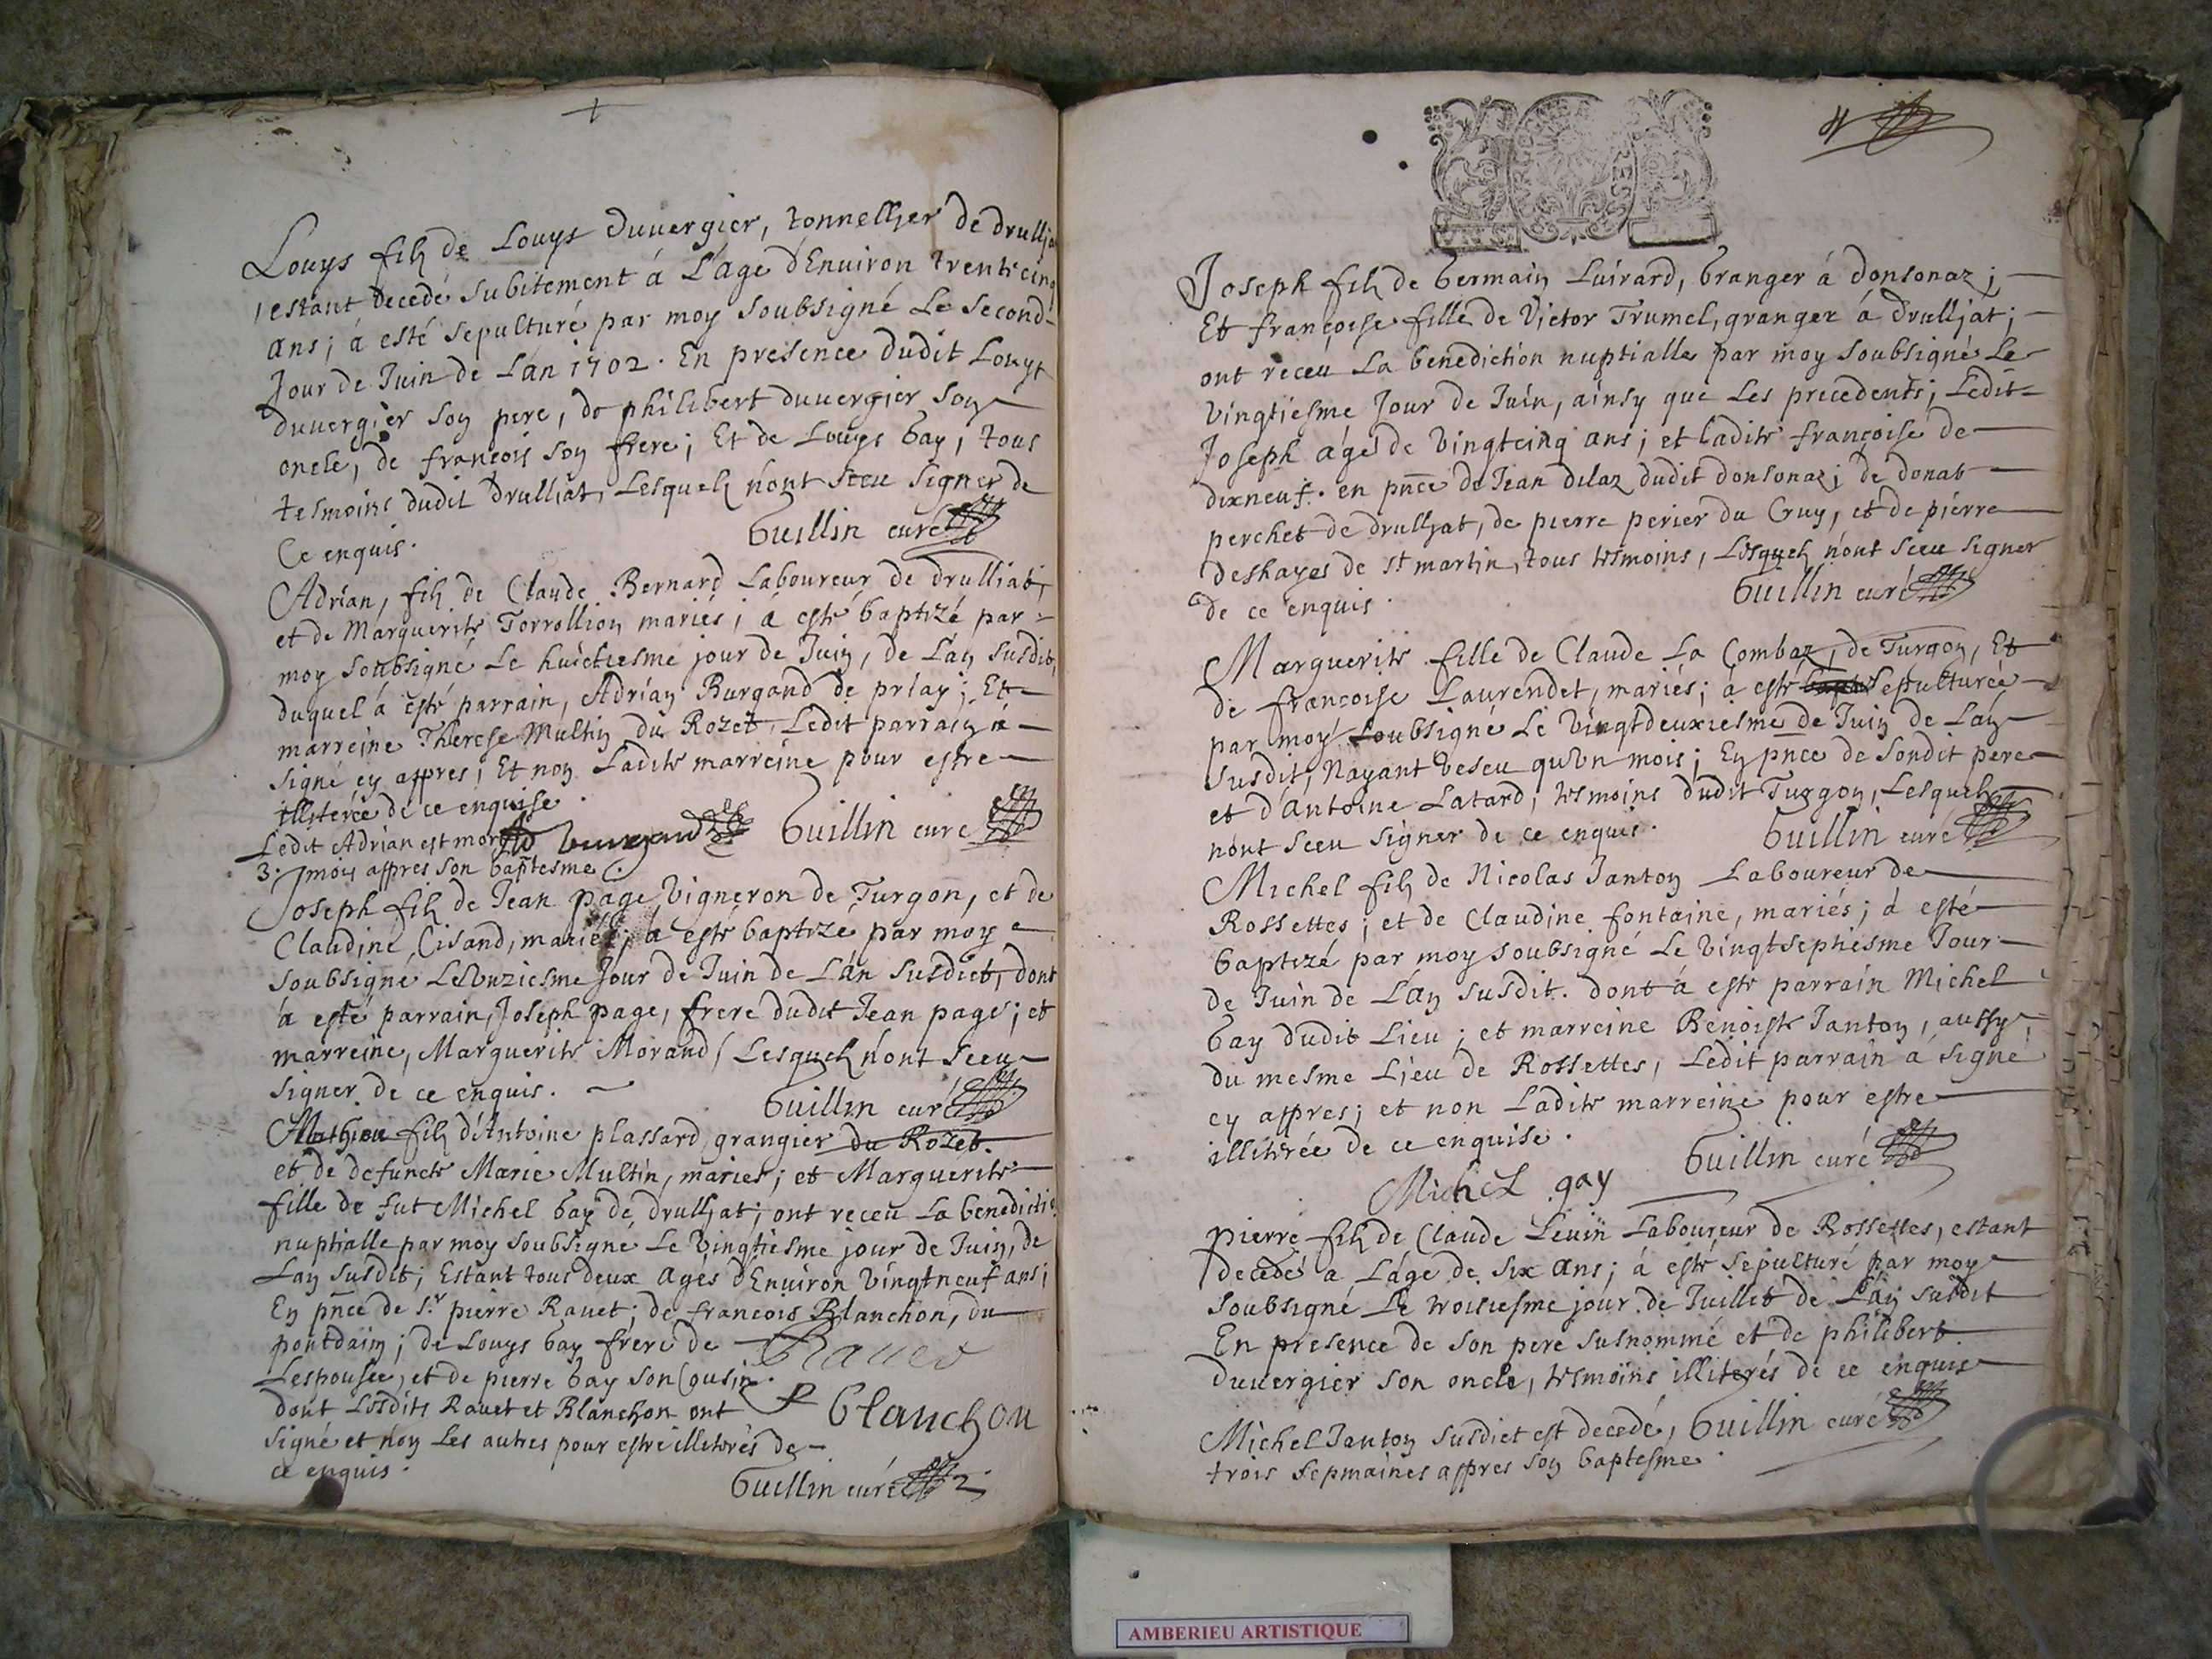 Louys filz de Louys Duvergier, tonnellier de drullia
estant decedé subitement á L'age d'Environ trente cinq
ans; á esté sepulturé par moy soubsigné Le Second
Jour de Juin de L'an 1702. En presence dudit Louys
duvergier son pere, de philibert duvergier son
oncle, de françois son frere; Et de Louys Gay, tous
tesmoins dudit Drulliat, Lesquelz n'ont sceu signer de
Ce enquis.
Guillin curé
Adrian, filz de Claude Bernard Laboureur de drulliat,
et de Marguerite Torrollion mariés; á esté baptizé par
moy soubsigné Le huictiesme jour de Juin, de L'an susdit,
duquel á esté parrain, Adrian Burgand de priay; Et
marreine Therese Multin du Rozet, Ledit parrain á
signé cy appres; Et non Ladite marreine pour estre
illiterée de ce enquise.
Ledit Adrian est mort
3. mois appres son baptesme.
Ad burgand
Guillin curé
Joseph filz de Jean page Vigneron de Turgon, et de
Claudine Cisand, mariés; á esté baptizé par moy
soubsigné Le Unziesme Jour de Juin de L'an susdict, dont
á esté parrain, Joseph page, frere dudit Jean page; et
marreine, Marguerite Morand, Lesquelz n'ont sceu
signer de ce enquis.
Guillin curé
Mathieu filz d'Antoine plassard grangier du Rozet.
et de defuncte Marie Multin, mariés; et Marguerite
fille de fut Michel Gay de drulliat; ont receu La benedicti
nuptialle par moy soubsigné Le Vingtiesme jour de Juin, de
L'an susdit; Estant tous deux agés d'Environ Vingtneuf ans;
En pñce de Sr pierre Ravet; de francois Blanchon, du
pontdain; de Louys Gay frere de
Lespousée, et de pierre Gay son Cousin.
dont Lesdits Ravet et Blanchon ont
signé et non Les autres pour estre illiterés de
ce enquis.
Ravet
Blanchon
Guillin curé
Joseph filz de Germain Luirard, Granger á donsonaz;
Et françoise fille de Victor Trumel, granger á drulliat;
ont receu La benediction nuptialle par moy soubsigné Le
Vingtiesme Jour de Juin, ainsy que Les precedents; Ledit
Joseph agé de Vingtcinq ans; et Ladite françoise de
dixneuf. en pñce de Jean dilaz dudit donsonaz; de donat
perchet de drulliat, de pierre perier du Cruy, et de pierre
deshayes de st martin, tous tesmoins, Lesquelz n'ont sceu signer
de ce enquis.
Guillin curé
Marguerite fille de Claude La Combaz, de Turgon, Et
de françoise Laurendet, mariés; á esté Sepulturée
par moy soubsigné Le Vingtdeuxiesme de Juin de L'an
susdit, Nayant Vescu qu'Un mois; En pñce de sondit pere
et d'Antoine Latard, tesmoins dudit Turgon, Lesquelz
n'ont sceu signer de ce enquis.
Guillin curé
Michel filz de Nicolas Janton Laboureur de
Rossettes; et de Claudine fontaine, mariés; á esté
baptizé par moy soubsigné Le Vingtseptiesme Jour
de Juin de L'an susdit. dont á esté parrain Michel
Gay dudit Lieu; et marreine Benoiste Janton, aussy
du mesme Lieu de Rossettes, Ledit parrain á signé
cy appres; et non Ladite marreine pour estre
illiterée de ce enquise.
Guillin curé
Michel gay
pierre filz de Claude Levin Laboureur de Rossettes, estant
decedé a L'age de six ans; á esté sepulturé par moy
soubsigné Le troisiesme jour de Juillet de L'an susdit
En presence de son pere susnommé et de philibert
duvergier son oncle, tesmoins illiterés de ce enquis
Guillin curé
Michel Janton susdict est decedé,
trois sepmaines appres son baptesme.
AMBERIEU ARTISTIQUE